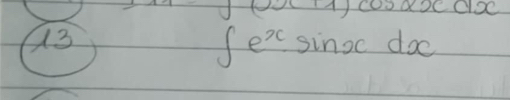 cos αx dx
13 ∫ eˣ sinx dx